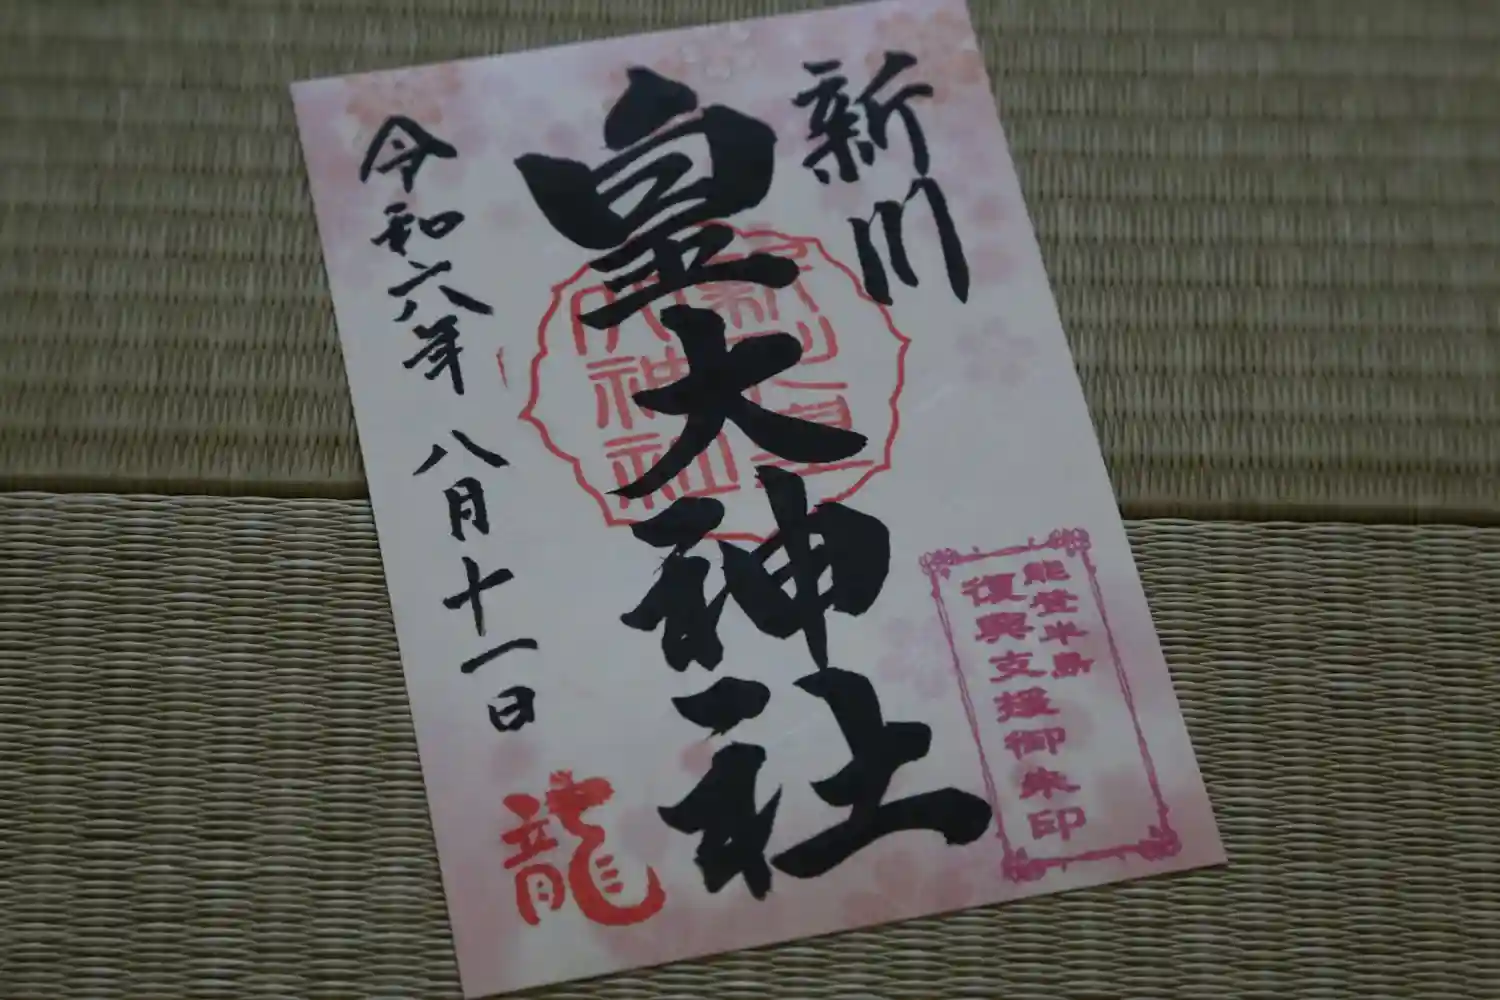 新川
皇大神社
令和六年 八月十一日
龍
能登半島
復興支援御朱印